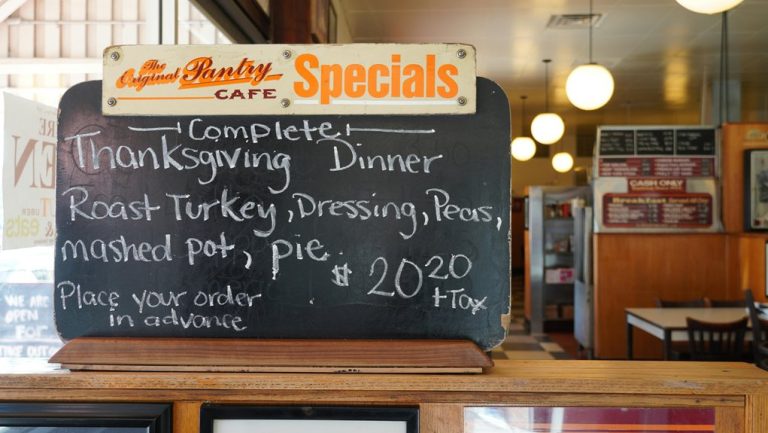 The
Original Pantry
CAFE
Specials
Complete
Thanksgiving Dinner
Roast Turkey, Dressing, Peas,
mashed pot, pie
$ 20 20
+ Tax
Place your order
in advance
WE ARE
OPEN
FOR
TAKE OUT
CASH ONLY
Breakfast